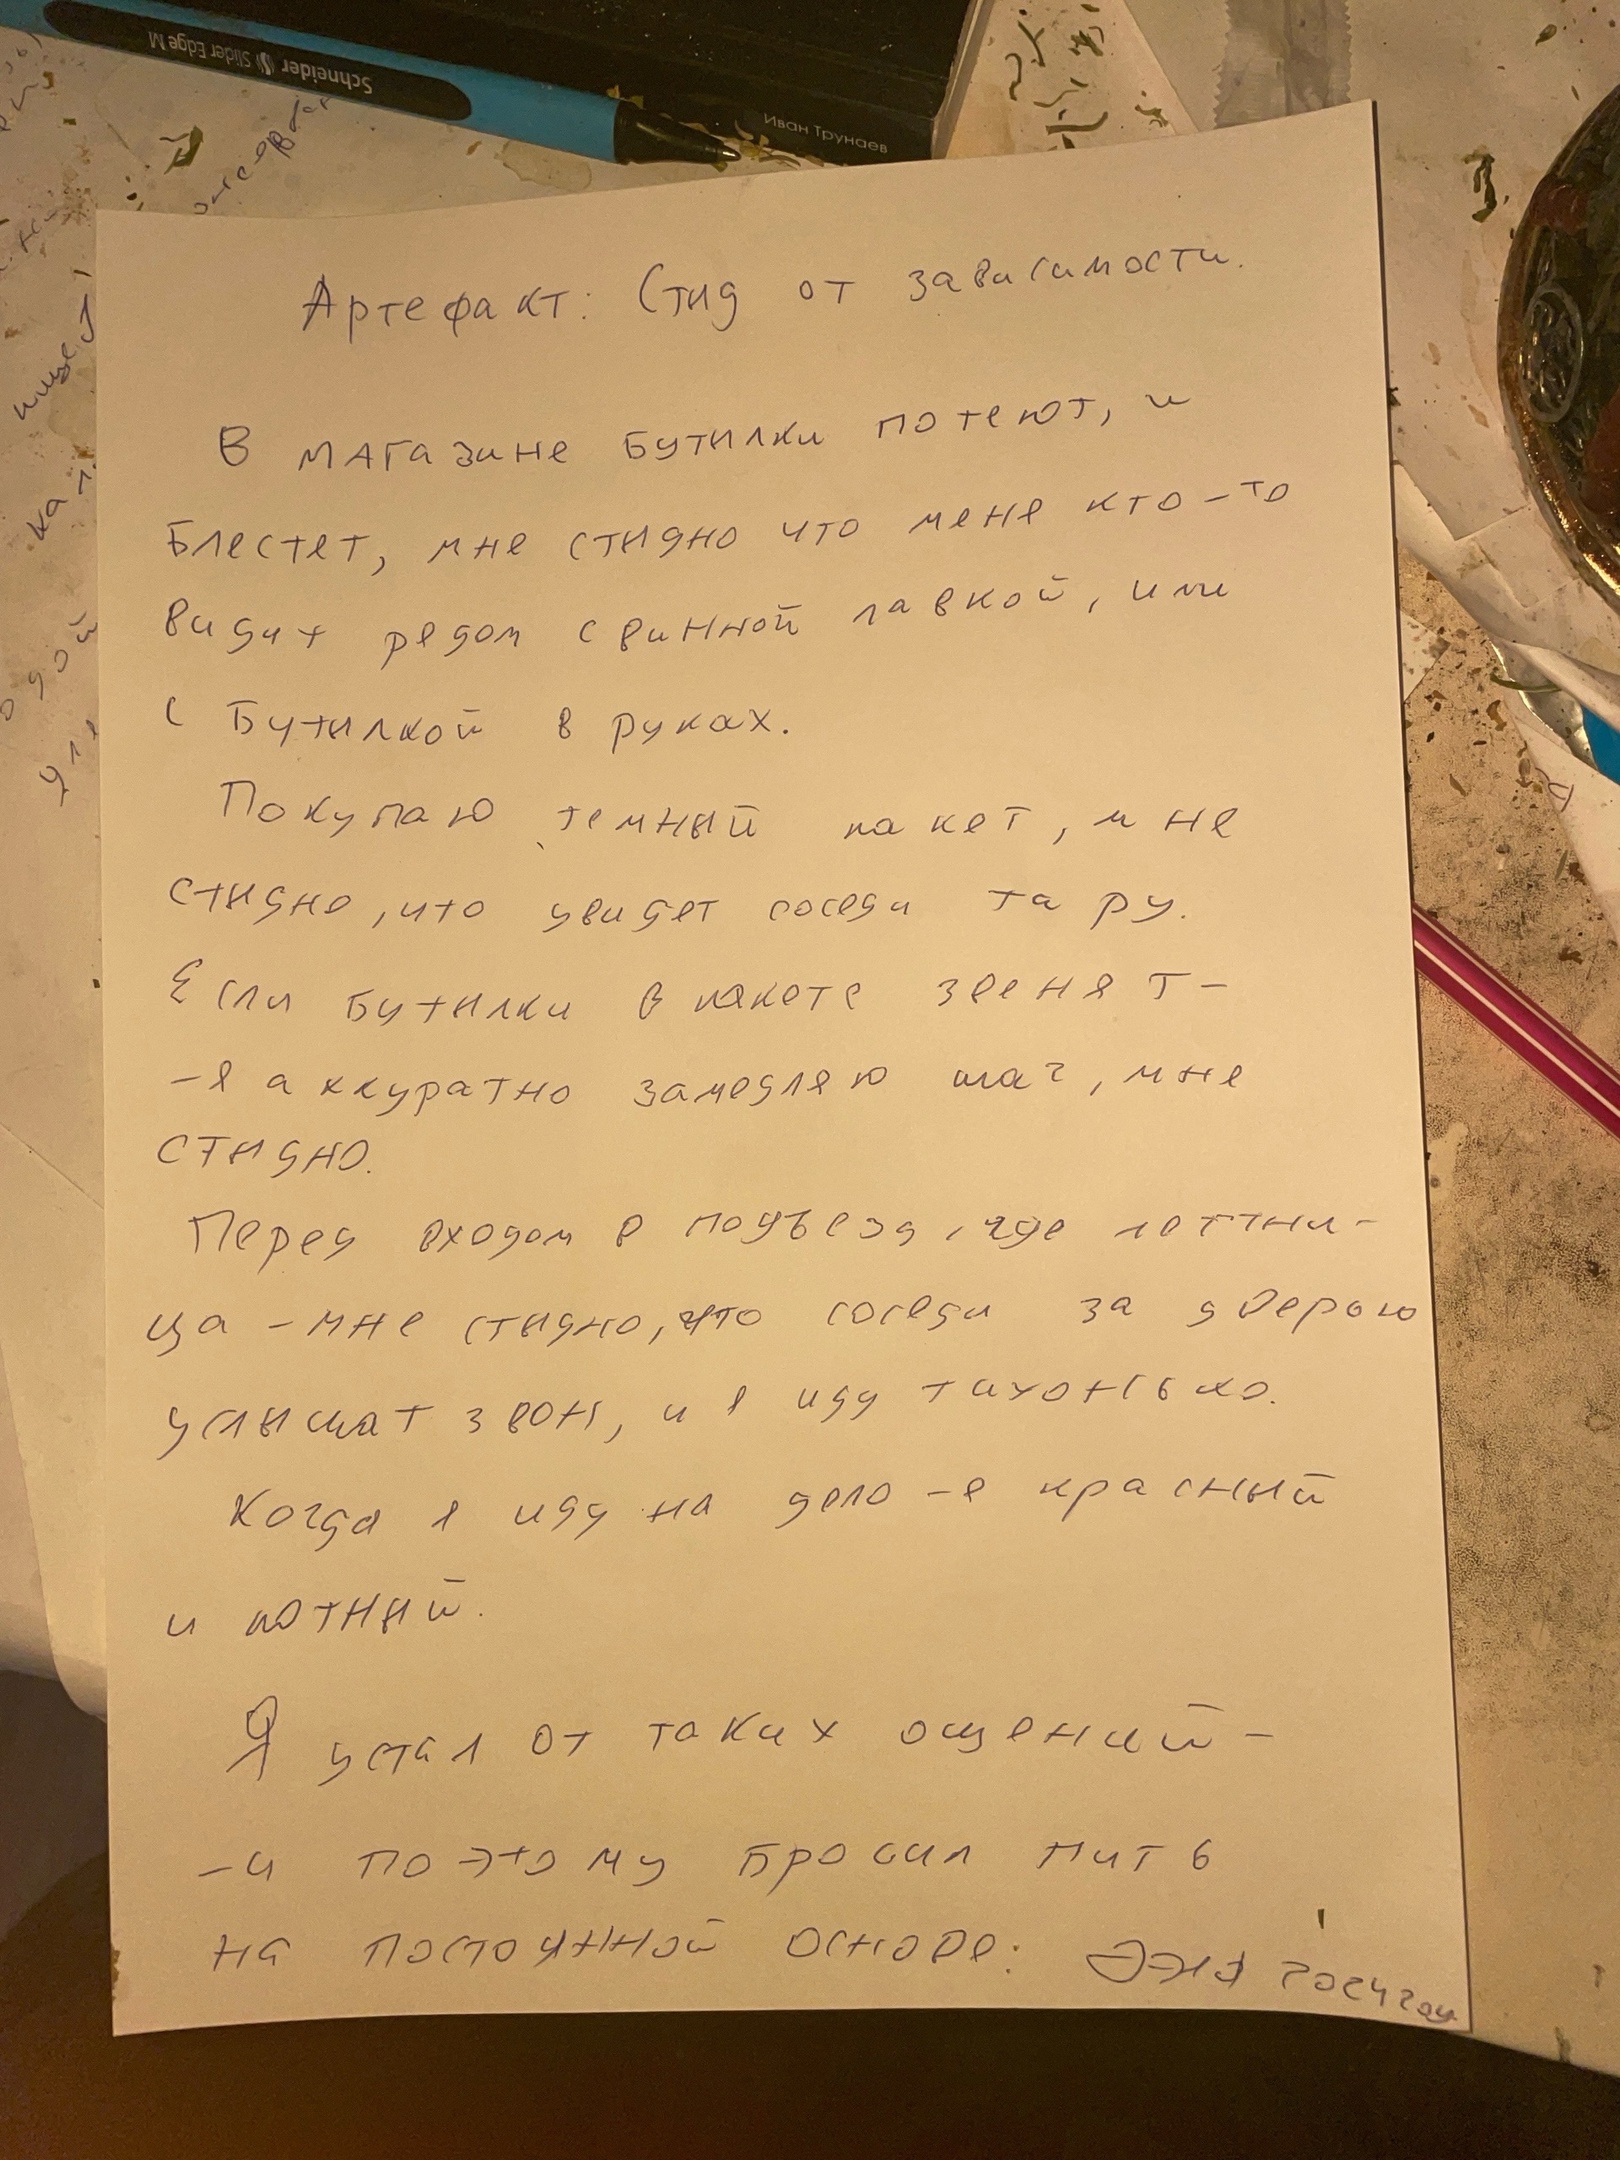 Schneider Slider Edge M
Иван Трунаев
Артефакт: Стыд от зависимости.
В магазине бутылки потеют, и
блестят, мне стыдно что меня кто-то
видит рядом с винной лавкой, или
с бутылкой в руках.
Покупаю темный пакет, мне
стыдно, что увидят соседи тару.
Если бутылки в пакете звенят -
- я аккуратно замедляю шаг, мне
стыдно.
Перед входом в подъезд, где лестни-
ца - мне стыдно, что соседи за дверью
услышат звон, и я иду тихонько.
Когда я иду на дело - я красный
и потный.
Я устал от таких ощений -
- и поэтому бросил пить
на постоянной основе: